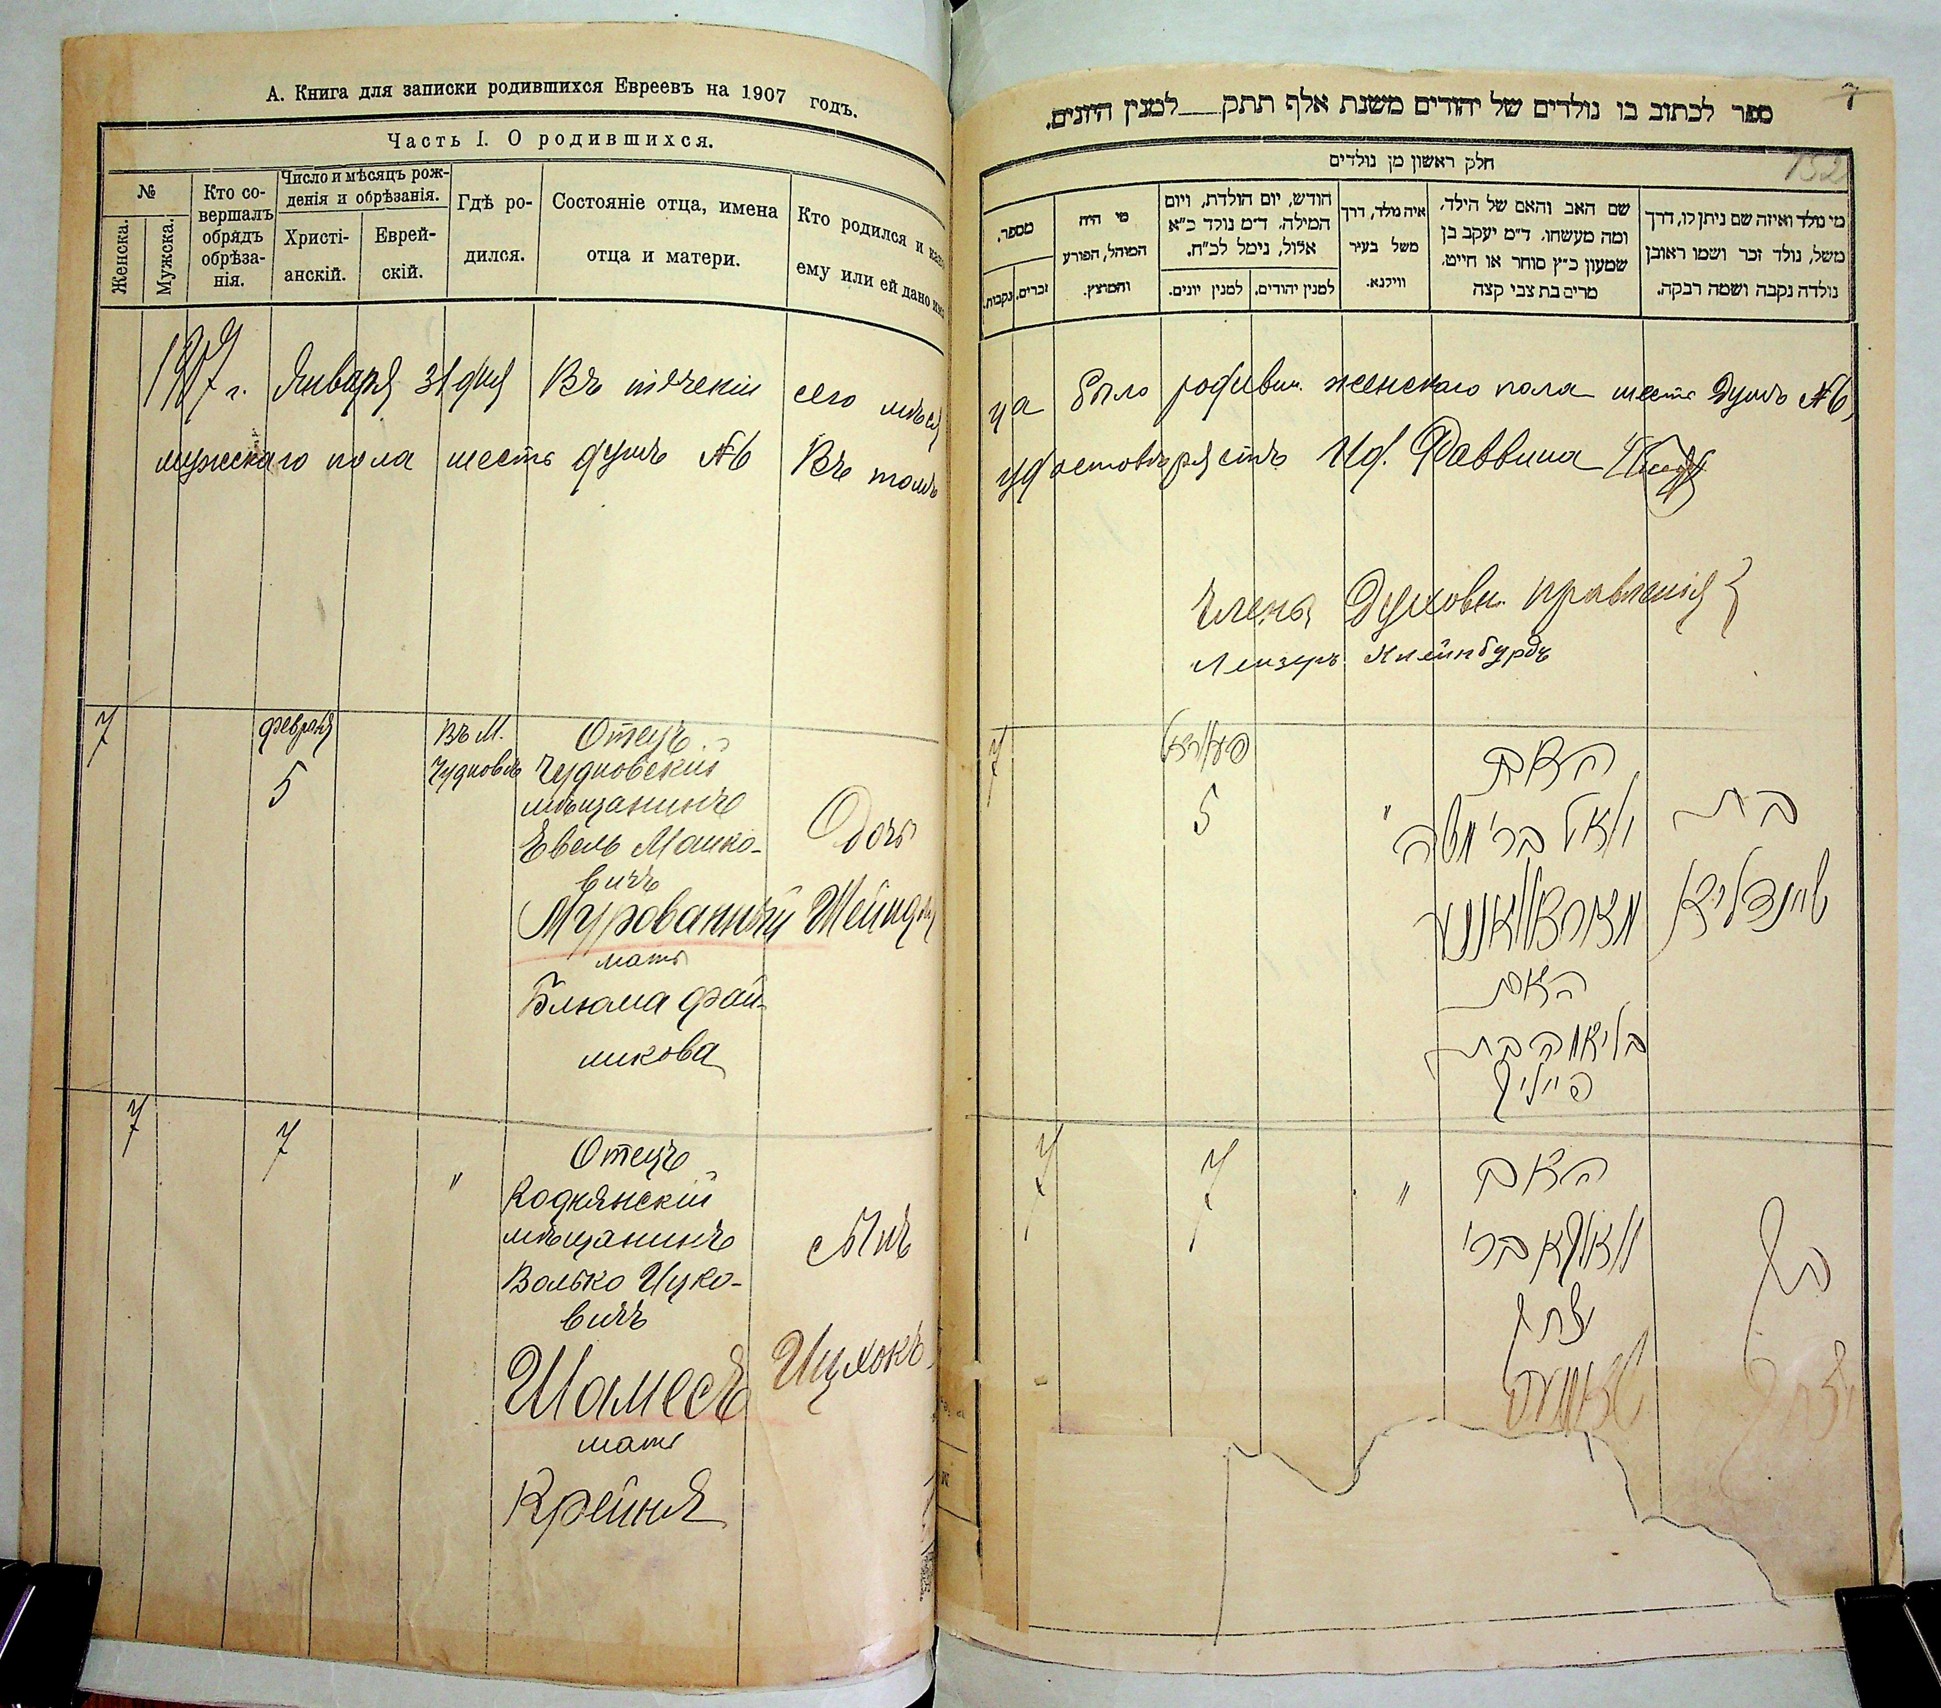 А. Книга для записки родившихся Евреевъ на 1907 годъ.
Часть I. О родившихся.
№
Женска.
Мужска.
Кто со-
вершалъ
обрядъ
обрѣза-
нія.
Число и мѣсяцъ рож-
денія и обрѣзанія.
Христі-
анскій.
Еврей-
скій.
Гдѣ ро-
дился.
Состояніе отца, имена
отца и матери.
Кто родился и како
ему или ей дано имя
1907 г. Января 31 дня Въ теченіи сего мѣся
мужскаго пола шесть душъ №6 Въ томъ
7
февраля
5
Въ М.
Чудновѣ
Отецъ
Чудновскій
мѣщанинъ
Евель Мошко-
вичъ
Мурованный
мать
Блюма Фай-
ликова
Дочь
Шейндля
7
7
"
Отецъ
Коднянскій
мѣщанинъ
Волько Ицко-
вичъ
Шамесъ
мать
Крейня
сынъ
Ицхокъ
7
152
ספר לכתוב בו נולדים של יהודים משנת אלף תתק___למנין היונים.
חלק ראשון מן נולדים
מספר.
זכרים.
נקבות.
מי היה
המוהל, הפורע
והמוצץ.
חודש, יום הולדת, ויום
המילה. ד״מ נולד כ״א
אלול, נימל לכ״ח.
למנין יהודים.
למנין יונים.
איה נולד, דרך
משל בעיר
ווילנא.
שם האב והאם של הילד,
ומה מעשהו. ד״מ יעקב בן
שמעון כ״ץ סוחר או חייט.
מרים בת צבי קצה
מי נולד ואיזה שם ניתן לו, דרך
משל, נולד זכר ושמו ראובן
נולדה נקבה ושמה רבקה.
ца было родивш. женскаго пола шесть душъ №6,
удостовѣряетъ И.д. Раввина
Члены Духовн. правленія
Лейзеръ
7
5
"
האב
בר' משה
האם
בליומה בת
פייליק
בת
שיינדליא
7
7
"
האב
וואלקא בר'
יצחק
שאמעס
בן
יצחק